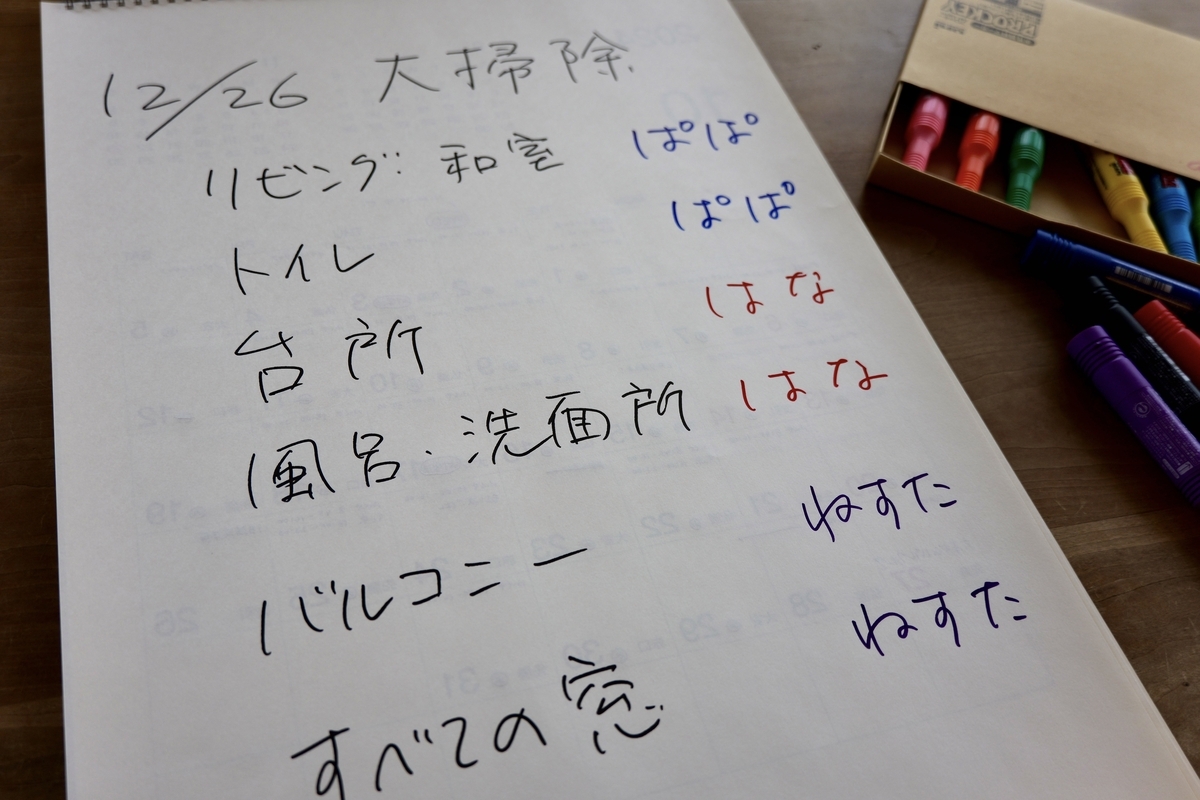 12/26 大掃除
リビング・和室 ぱぱ
トイレ ぱぱ
台所 はな
風呂・洗面所 はな
バルコニー ねすた
すべての窓 ねすた
PROCKEY